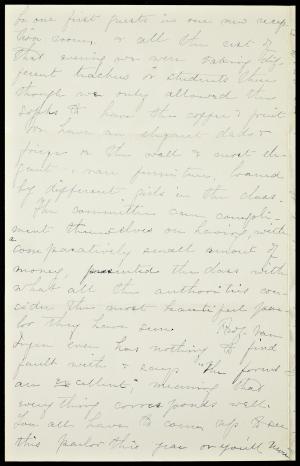 for our first guests in our new recep
tion room, & all the rest of
that evening we were taking dif
ferent teachers & students there
though we only allowed the
sophs to have the coffee & fruit
We have an elegant dado &
frieze on the wall & most ele
gant & rare furniture, loaned
by different girls in the class.
The committee can compli
ment themselves on having with
a comparatively small amount of
money, presented the class with
what all the authorities con
sider the most beautiful par
lor they have seen. Prof. Van
Ingen even has nothing to find
fault with & says "The forms
are excellent", meaning that
everything corresponds well.
You all have to come up to see
this parlor this year or you'll never